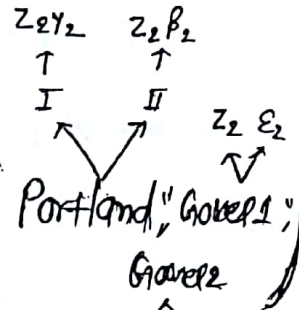 Z₂γ₂ Z₂β₂
I II
Z₂ ε₂
Portland, "Gover1",
Gover2